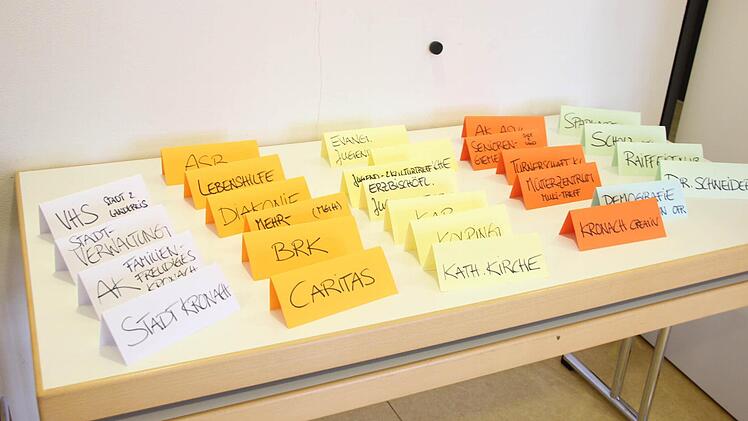 VHS STADT & LANDKREIS
STADT-
VERWALTUNG
AK FAMILIEN-
FREUDIGES
KRONACH
STADT KRONACH
ASB
LEBENSHILFE
DIAKONIE
MEHR-
BRK
CARITAS
EVANGL.
JUGEND
JUGEND- & KULTURTREFF
ERZBISCHÖFL.
KAB
KOLPING
KATH. KIRCHE
AK
SENIOREN-
GEME
TURNERSCHAFT KC
MÜTTERZENTRUM
DEMOGRAFIE
KRONACH CREATIV
RAIFFEISEN
DR. SCHNEIDER